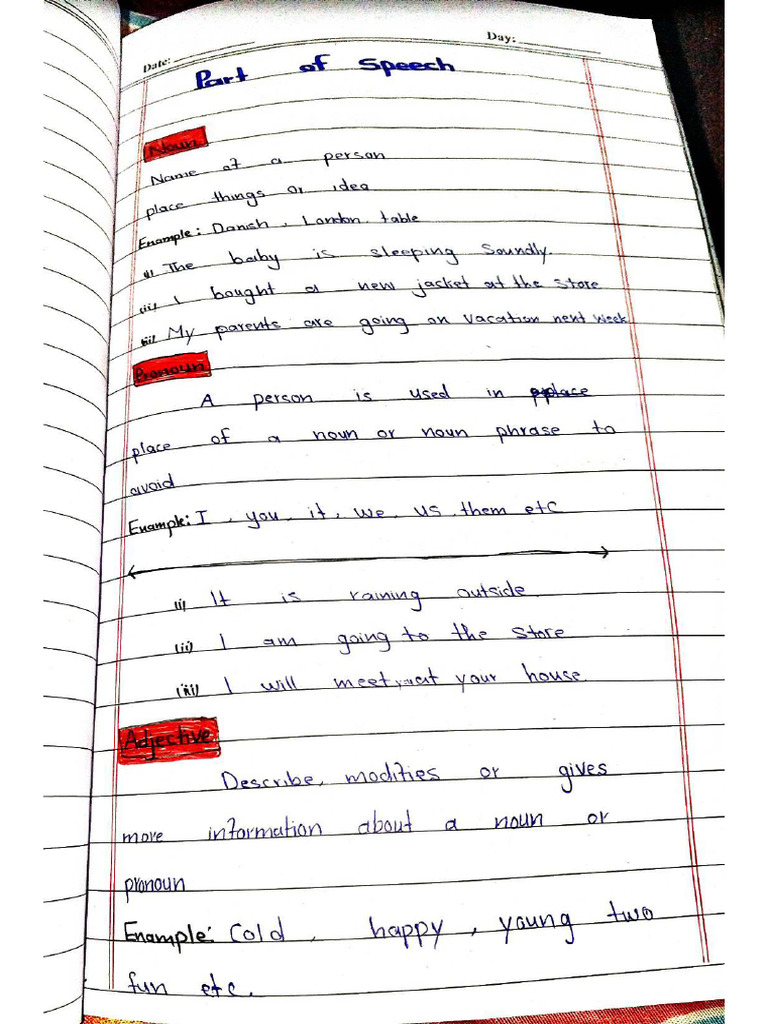 Date:
Day:
Part of Speech
Noun
Name of a person
place things or idea
Example: Danish, London, table
i) The baby is sleeping Soundly.
(ii) I bought a new jacket at the store
iii) My parents are going on vacation next week
Pronoun
A person is used in place
place of a noun or noun phrase to
avoid
Example: I, you, it, we, us, them etc
(i) It is raining outside.
(ii) I am going to the store
(iii) I will meet at your house.
Adjective
Describe, modifies or gives
more information about a noun or
pronoun
Example: Cold, happy, young two
fun etc.